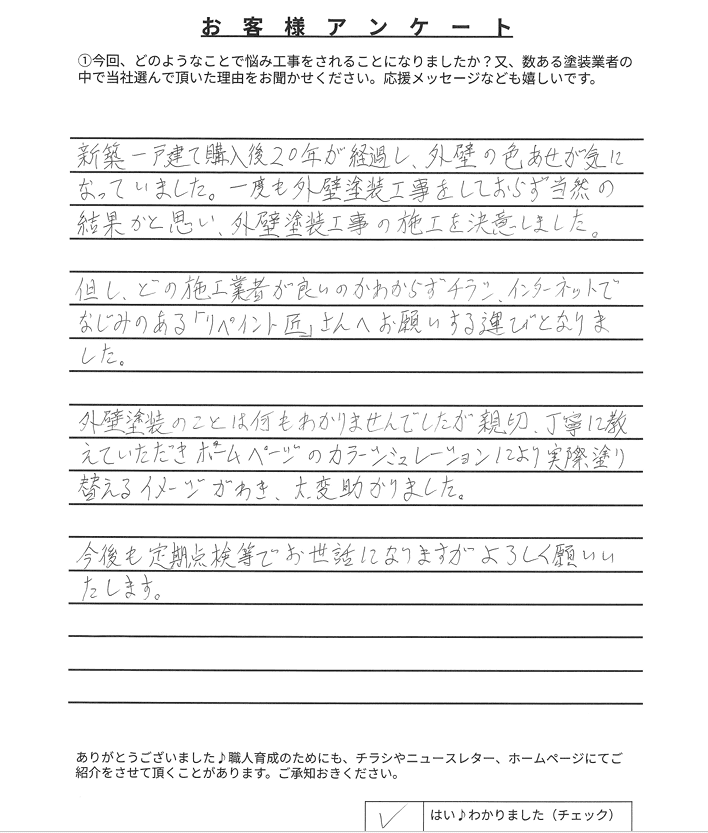 お客様アンケート
①今回、どのようなことで悩み工事をされることになりましたか？又、数ある塗装業者の
中で当社選んで頂いた理由をお聞かせください。応援メッセージなども嬉しいです。
新築一戸建て購入後20年が経過し、外壁の色あせが気に
なっていました。一度も外壁塗装工事をしておらず当然の
結果かと思い、外壁塗装工事の施工を決意しました。
但し、どの施工業者が良いのかわからずチラシ、インターネットで
なじみのある「リペイント匠」さんへお願いする運びとなりま
した。
外壁塗装のことは何もわかりませんでしたが親切、丁寧に教
えていただきホームページのカラーシミュレーションにより実際塗り
替えるイメージがわき、大変助かりました。
今後も定期点検等でお世話になりますがよろしく願いい
たします。
ありがとうございました♪職人育成のためにも、チラシやニュースレター、ホームページにてご
紹介をさせて頂くことがあります。ご承知おきください。
✓ はい♪わかりました（チェック）